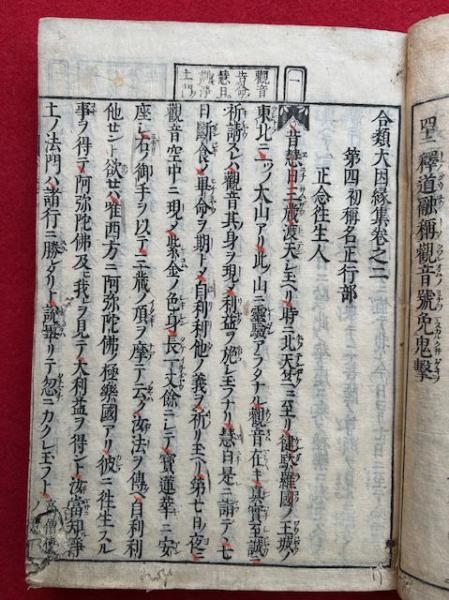 聖 釋道融稱觀音號免鬼撃
觀音
昔命
慧日
觀淨
土門
一
合類大因縁集卷之二
第四初稱名正行部
正念往生人
昔慧日三藏渡天シ玉ヘリ時ニ北天竺ニ至リ健駄羅國ノ王城ノ
東北ニ一ツノ大山アリ此ノ山ニ靈驗アラタナル觀音在キ真實至誠ニ
祈請スレハ觀音其身ヲ現メ利益ヲ施シ玉フナリ慧日是ニ詣テ七
日斷食メ畢命ヲ期トメ自利利他ノ義ヲ祈リ玉ヘリ第七日ノ夜ニ
觀音空中ニ現メ紫金ノ色身長一丈餘ニシテ寳蓮華ニ安
座シ右ノ御手ヲ以テ三藏ノ頂ヲ摩テ云ク汝法ヲ傳ヘ自利利
他セント欲セハ唯西方ニ阿弥陀佛ノ極樂國アリ彼ニ往生スル
事ヲ得テ阿弥陀佛及ヒ我ヲ見テ大利益ヲ得ント汝當知淨
土ノ法門ハ諸行ニ勝タリト説畢リテ忽ニカクレ玉フト